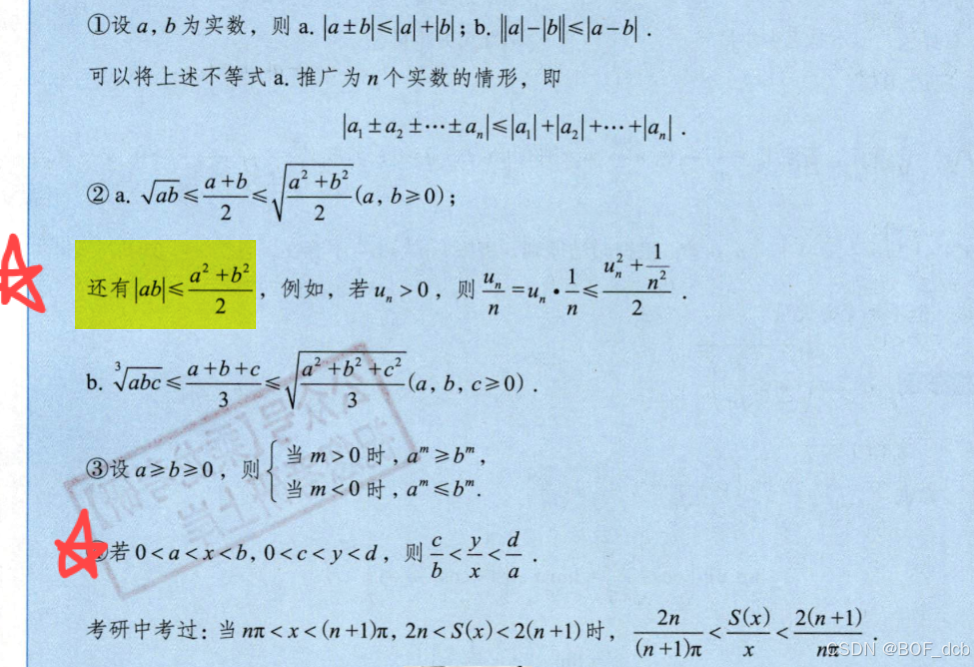 ①设 a, b 为实数，则 a. |a±b|≤|a|+|b|；b. ||a|-|b||≤|a-b|．
可以将上述不等式 a. 推广为 n 个实数的情形，即
|a₁±a₂±⋯±aₙ|≤|a₁|+|a₂|+⋯+|aₙ|．
② a. √(ab)≤(a+b)/2≤√((a²+b²)/2)(a, b≥0)；
还有|ab|≤(a²+b²)/2，例如，若 uₙ>0，则 uₙ/n=uₙ·1/n≤(uₙ²+1/n²)/2．
b. ³√(abc)≤(a+b+c)/3≤√((a²+b²+c²)/3)(a, b, c≥0)．
③设 a≥b≥0，则{当 m>0 时, aᵐ≥bᵐ,
当 m<0 时, aᵐ≤bᵐ.
若 0<a<x<b, 0<c<y<d，则 c/b<y/x<d/a．
考研中考过：当 nπ<x<(n+1)π, 2n<S(x)<2(n+1) 时，2n/((n+1)π)<S(x)/x<2(n+1)/(nπ)．
CSDN @BOF_dcb